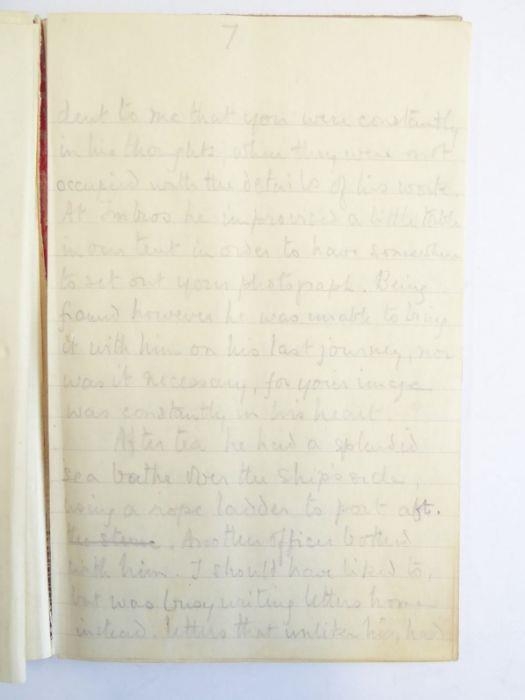 7
dent to me that you were constantly
in his thoughts when they were not
occupied with the details of his work.
At Imbros he improvised a little table
in our tent in order to have somewhere
to set out your photograph. Being
framed however he was unable to bring
it with him on his last journey, nor
was it necessary, for your image
was constantly in his heart.
After tea he had a splendid
sea bathe over the ship's side,
using a rope ladder to port aft.
the stern. Another officer bathed
with him. I should have liked to,
but was busy writing letters home
instead. letters that unlike his, had